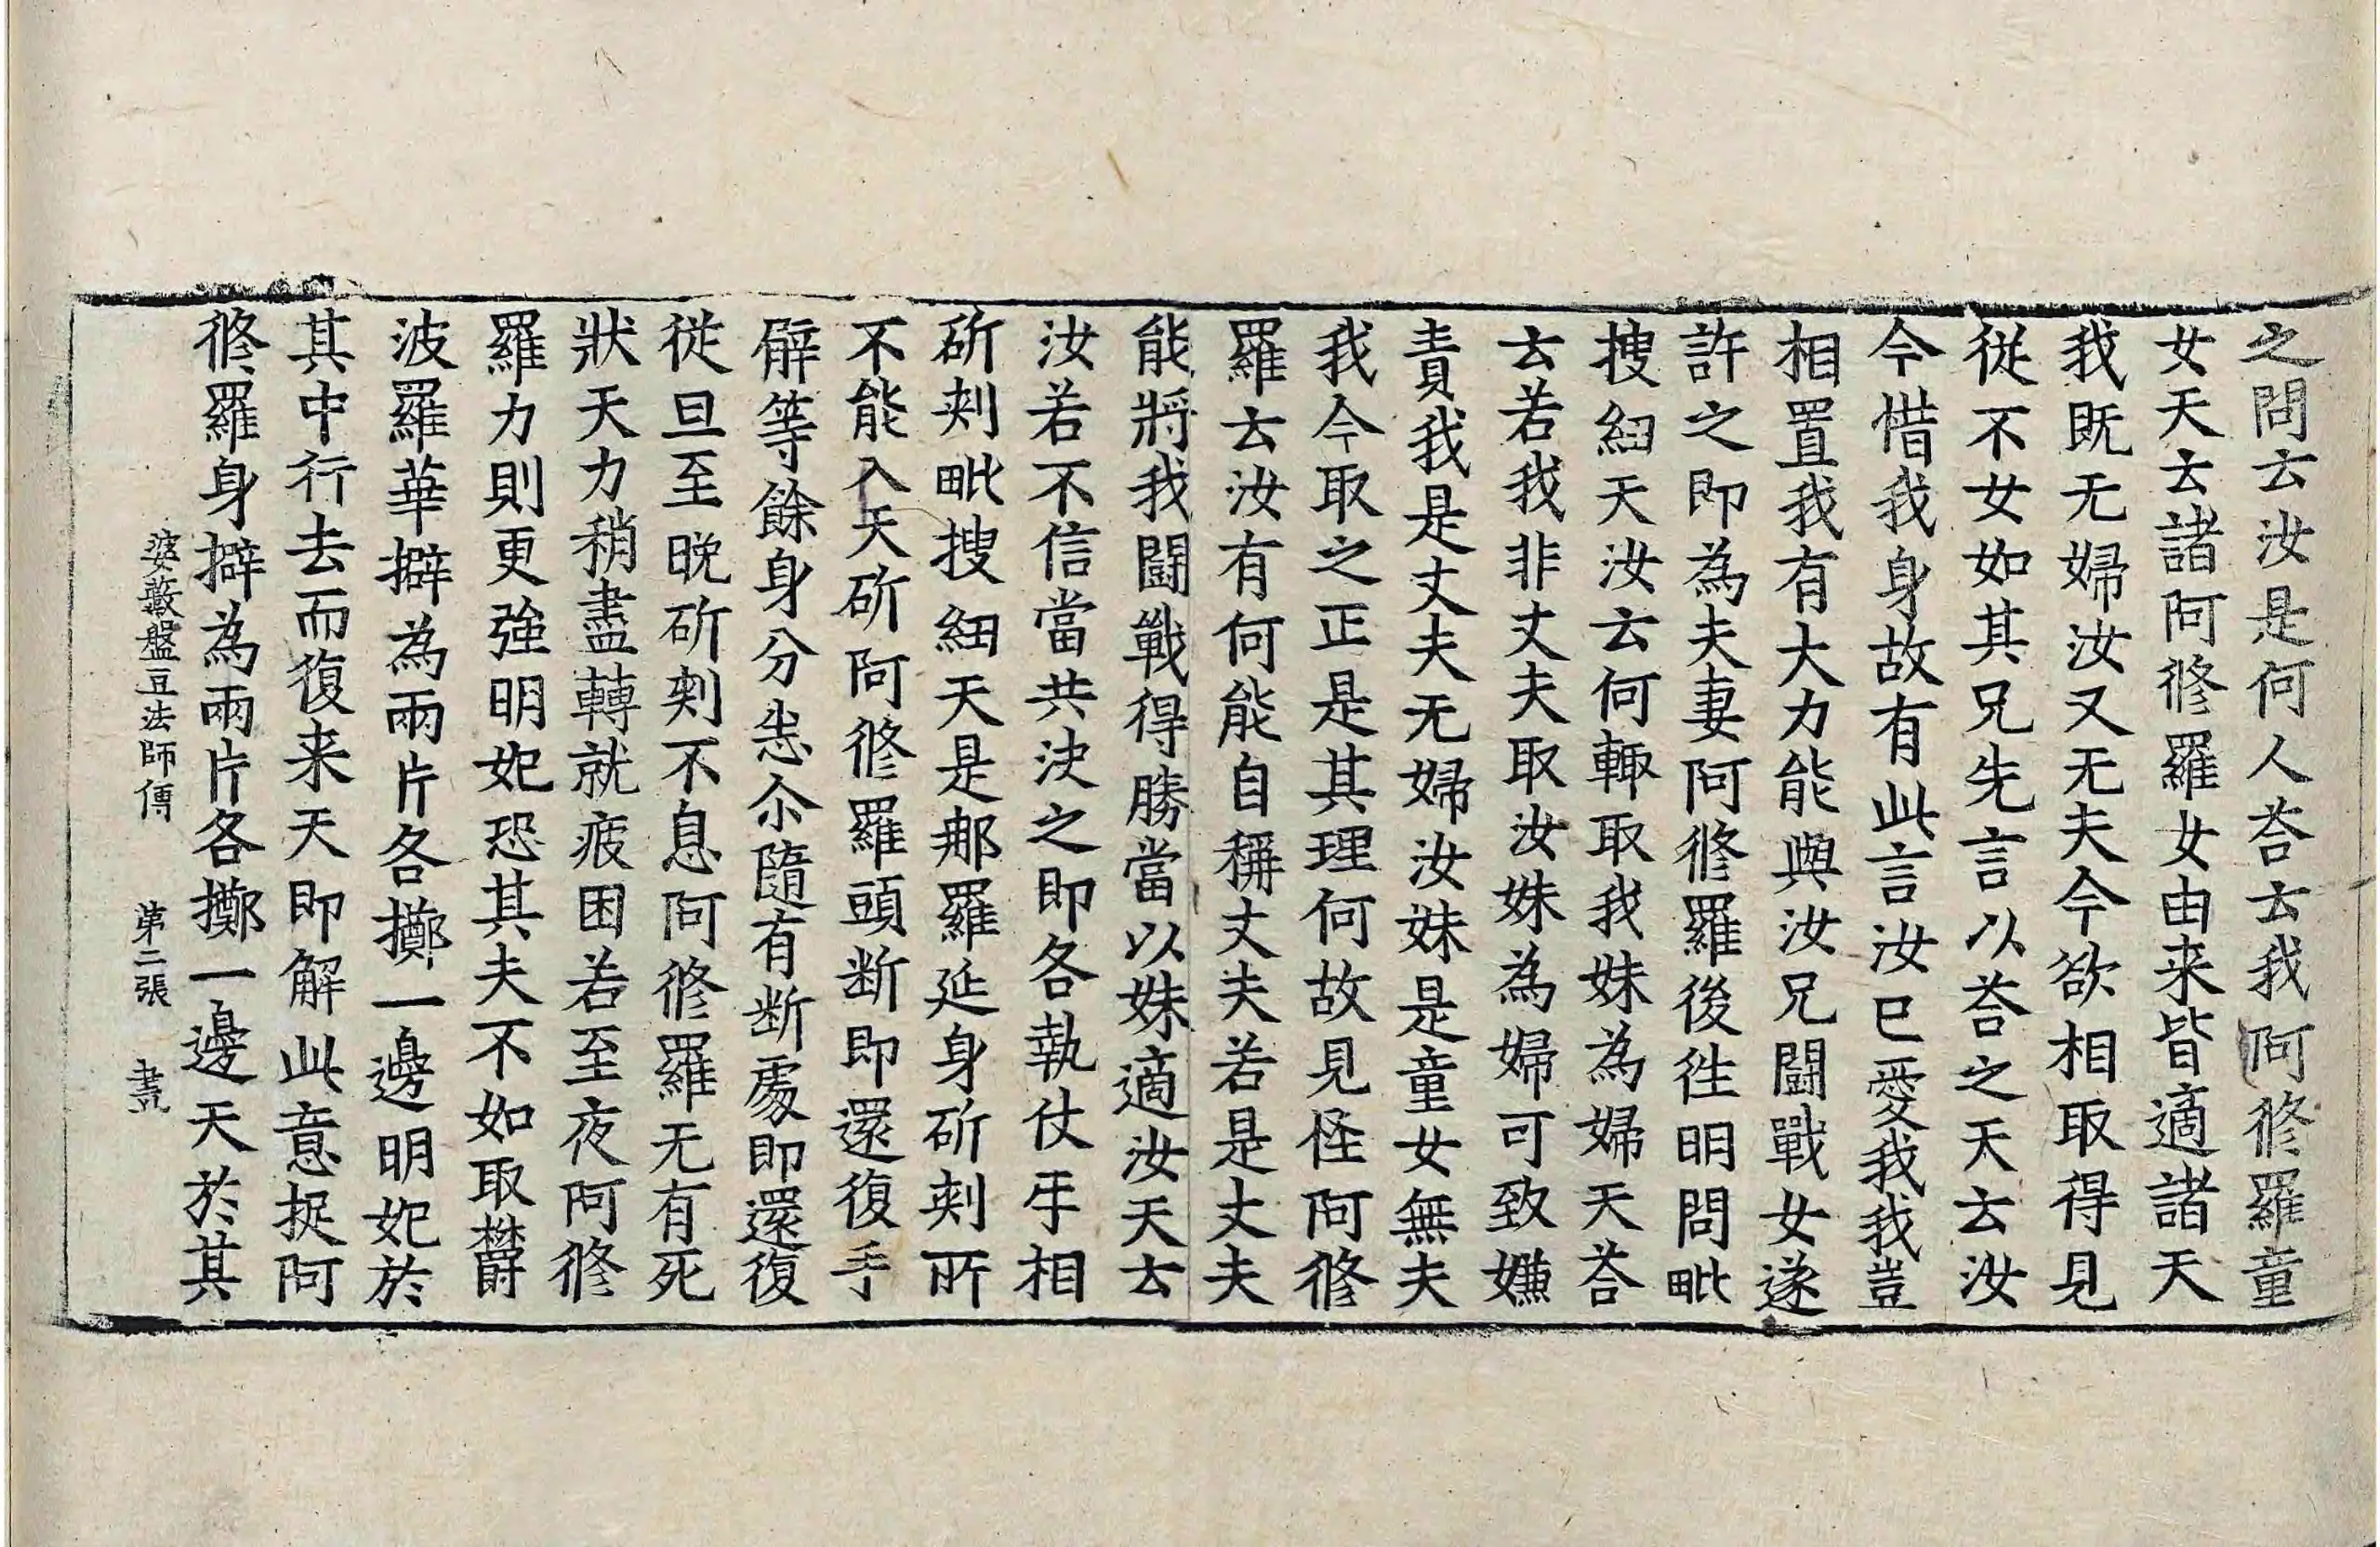 之問云汝是何人荅云我阿脩羅童
女天云諸阿脩羅女由来皆適諸天
我既无婦汝又无夫今欲相取得見
從不女如其兄先言以荅之天云汝
今惜我身故有此言汝已愛我我豈
相置我有大力能與汝兄闘戰女遂
許之即為夫妻阿脩羅後徃明問毗
搜紐天汝云何輙取我妹為婦天荅
云若我非丈夫取汝妹為婦可致嫌
責我是丈夫无婦汝妹是童女無夫
我今取之正是其理何故見怪阿脩
羅云汝有何能自稱丈夫若是丈夫
能將我闘戰得勝當以妹適汝天云
汝若不信當共決之即各執仗手相
斫刾毗搜紐天是那羅延身斫刾所
不能入天斫阿脩羅頭断即還復手
臂等餘身分恙尒隨有断處即還復
従旦至晚斫刾不息阿脩羅无有死
狀天力稍盡轉就疲困若至夜阿脩
羅力則更強明妃恐其夫不如取欝
波羅華擗為兩片各擲一邊明妃於
其中行去而復来天即解此意捉阿
脩羅身擗為兩片各擲一邊天於其
婆藪盤豆法師傳　第二張　畫